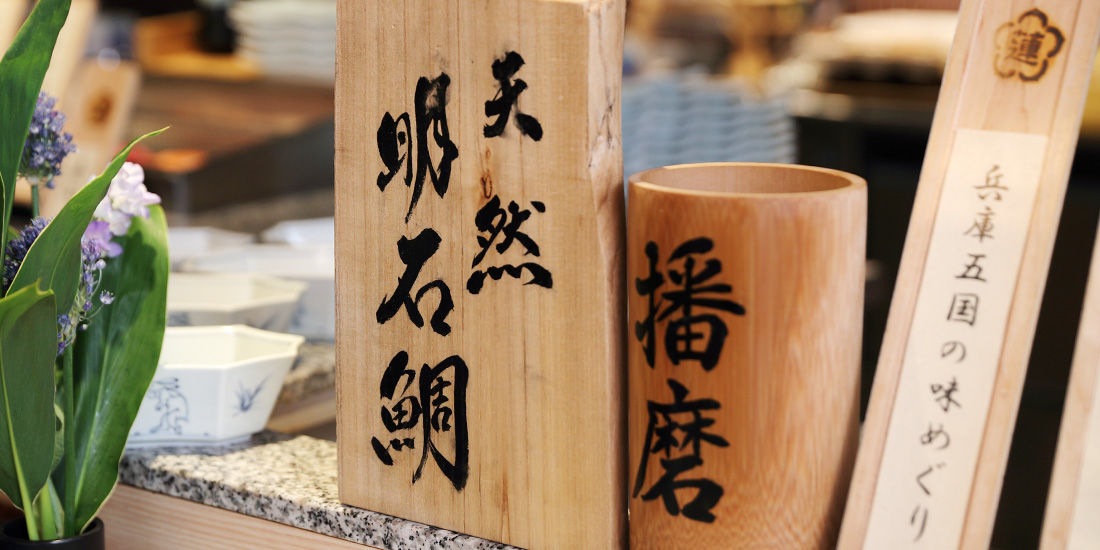 天然
明石鯛
播磨
蓮
兵庫五国の味めぐり